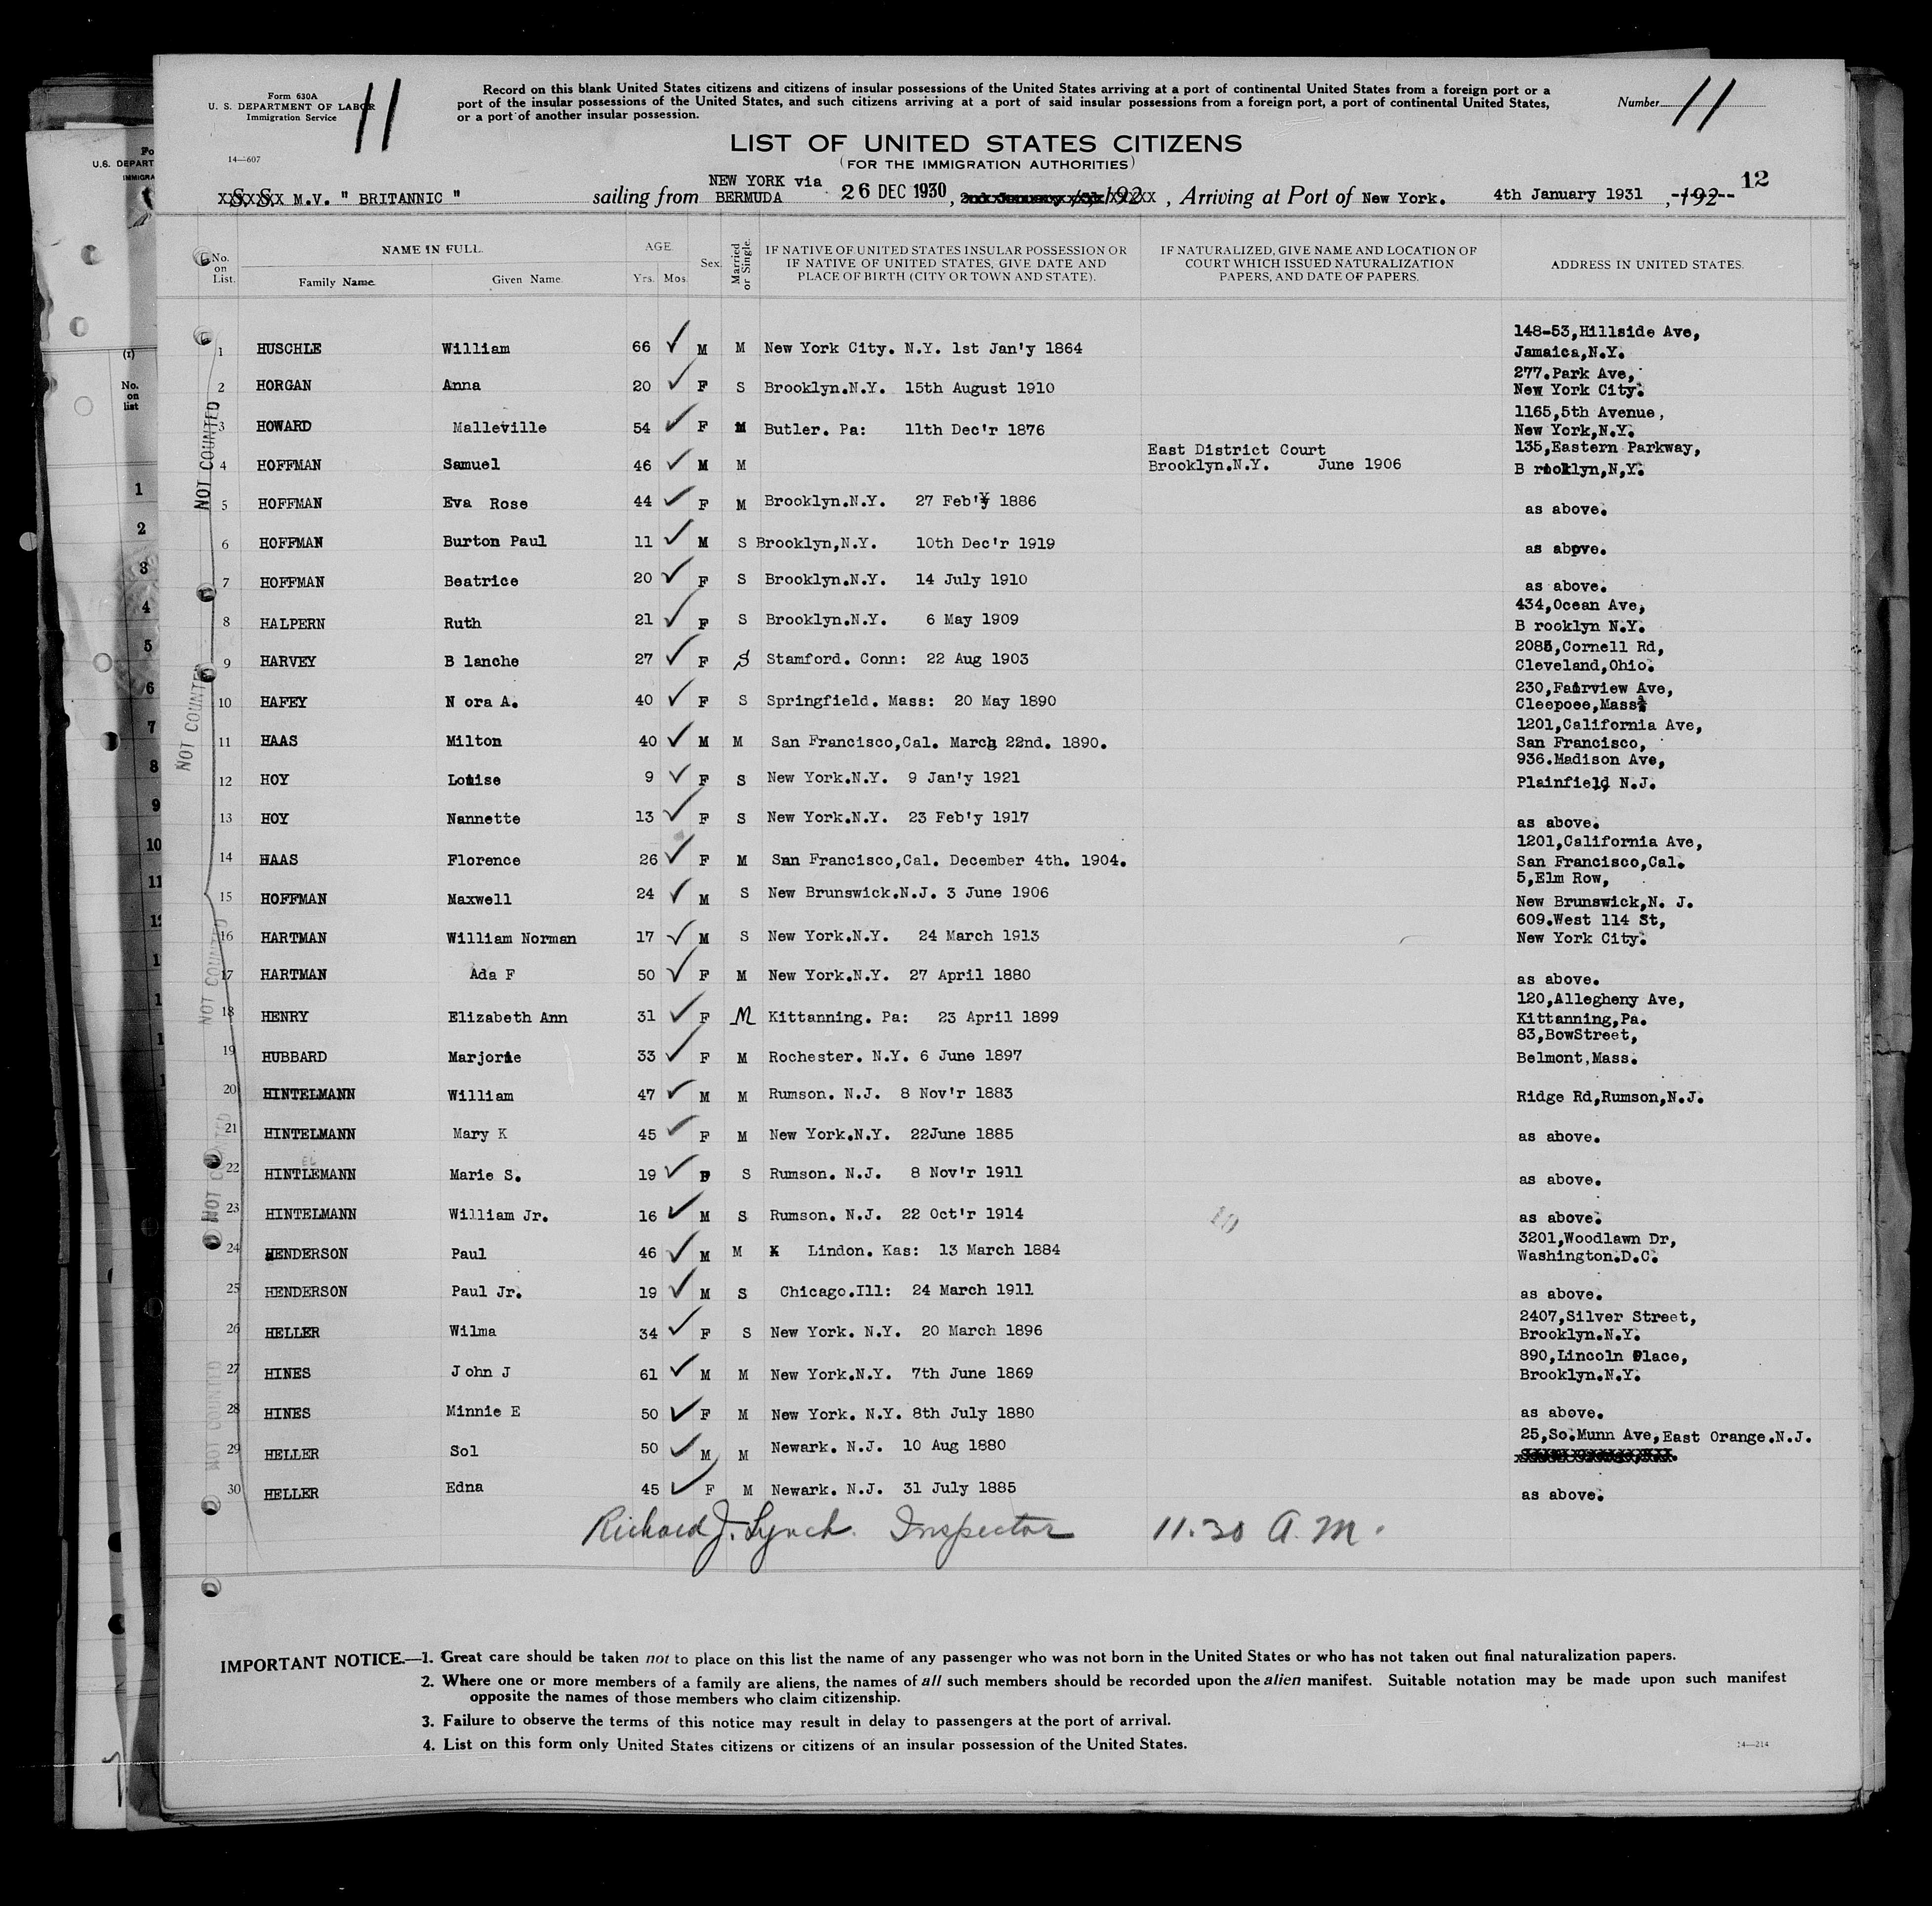 Form 630A
U. S. DEPARTMENT OF LABOR
Immigration Service
11
14—607
Record on this blank United States citizens and citizens of insular possessions of the United States arriving at a port of continental United States from a foreign port or a
port of the insular possessions of the United States, and such citizens arriving at a port of said insular possessions from a foreign port, a port of continental United States,
or a port of another insular possession.
Number 11
LIST OF UNITED STATES CITIZENS
(FOR THE IMMIGRATION AUTHORITIES)
12
S. S. M.V. " BRITANNIC " sailing from NEW YORK via BERMUDA 26 DEC 1930, 192 , Arriving at Port of New York. 4th January 1931 , 192
No. on List. NAME IN FULL. Family Name. Given Name. AGE. Yrs. Mos. Sex. Married or Single. IF NATIVE OF UNITED STATES INSULAR POSSESSION OR IF NATIVE OF UNITED STATES, GIVE DATE AND PLACE OF BIRTH (CITY OR TOWN AND STATE). IF NATURALIZED, GIVE NAME AND LOCATION OF COURT WHICH ISSUED NATURALIZATION PAPERS, AND DATE OF PAPERS. ADDRESS IN UNITED STATES.
1 HUSCHLE William 66 M M New York City. N.Y. 1st Jan'y 1864 148-53,Hillside Ave, Jamaica,N.Y.
2 HORGAN Anna 20 F S Brooklyn.N.Y. 15th August 1910 277.Park Ave, New York City.
3 HOWARD Malleville 54 F M Butler. Pa: 11th Dec'r 1876 1165,5th Avenue, New York,N.Y.
4 HOFFMAN Samuel 46 M M East District Court Brooklyn.N.Y. June 1906 135,Eastern Parkway, B rooklyn,N,Y.
5 HOFFMAN Eva Rose 44 F M Brooklyn.N.Y. 27 Feb'y 1886 as above.
6 HOFFMAN Burton Paul 11 M S Brooklyn,N.Y. 10th Dec'r 1919 as above.
7 HOFFMAN Beatrice 20 F S Brooklyn.N.Y. 14 July 1910 as above.
8 HALPERN Ruth 21 F S Brooklyn.N.Y. 6 May 1909 434,Ocean Ave, B rooklyn N.Y.
9 HARVEY B lanche 27 F S Stamford. Conn: 22 Aug 1903 2085,Cornell Rd, Cleveland,Ohio.
10 HAFEY N ora A. 40 F S Springfield. Mass: 20 May 1890 230,Fairview Ave, Cleepoee,Mass
11 HAAS Milton 40 M M San Francisco,Cal. March 22nd. 1890. 1201,California Ave, San Francisco,
12 HOY Louise 9 F S New York.N.Y. 9 Jan'y 1921 936.Madison Ave, Plainfield N.J.
13 HOY Nannette 13 F S New York.N.Y. 23 Feb'y 1917 as above.
14 HAAS Florence 26 F M San Francisco,Cal. December 4th. 1904. 1201,California Ave, San Francisco,Cal.
15 HOFFMAN Maxwell 24 M S New Brunswick.N.J. 3 June 1906 5,Elm Row, New Brunswick,N. J.
16 HARTMAN William Norman 17 M S New York.N.Y. 24 March 1913 609.West 114 St, New York City.
17 HARTMAN Ada F 50 F M New York.N.Y. 27 April 1880 as above.
18 HENRY Elizabeth Ann 31 F M Kittanning. Pa: 23 April 1899 120,Allegheny Ave, Kittanning,Pa.
19 HUBBARD Marjorie 33 F M Rochester. N.Y. 6 June 1897 83,BowStreet, Belmont,Mass.
20 HINTELMANN William 47 M M Rumson. N.J. 8 Nov'r 1883 Ridge Rd,Rumson,N.J.
21 HINTELMANN Mary K 45 F M New York.N.Y. 22June 1885 as above.
22 HINTLEMANN EL Marie S. 19 F S Rumson. N.J. 8 Nov'r 1911 as above.
23 HINTELMANN William Jr. 16 M S Rumson. N.J. 22 Oct'r 1914 10 as above.
24 HENDERSON Paul 46 M M Lindon. Kas: 13 March 1884 3201,Woodlawn Dr, Washington.D.C.
25 HENDERSON Paul Jr. 19 M S Chicago.Ill: 24 March 1911 as above.
26 HELLER Wilma 34 F S New York. N.Y. 20 March 1896 2407,Silver Street, Brooklyn.N.Y.
27 HINES John J 61 M M New York.N.Y. 7th June 1869 890,Lincoln Place, Brooklyn.N.Y.
28 HINES Minnie E 50 F M New York. N.Y. 8th July 1880 as above.
29 HELLER Sol 50 M M Newark. N.J. 10 Aug 1880 25,So.Munn Ave,East Orange.N.J.
30 HELLER Edna 45 F M Newark. N.J. 31 July 1885 as above.
NOT COUNTED
NOT COUNTED
NOT COUNTED
NOT COUNTED
NOT COUNTED
Richard J. Lynch. Inspector 11.30 A.M.
IMPORTANT NOTICE.—1. Great care should be taken not to place on this list the name of any passenger who was not born in the United States or who has not taken out final naturalization papers.
2. Where one or more members of a family are aliens, the names of all such members should be recorded upon the alien manifest. Suitable notation may be made upon such manifest
opposite the names of those members who claim citizenship.
3. Failure to observe the terms of this notice may result in delay to passengers at the port of arrival.
4. List on this form only United States citizens or citizens of an insular possession of the United States.
14—214